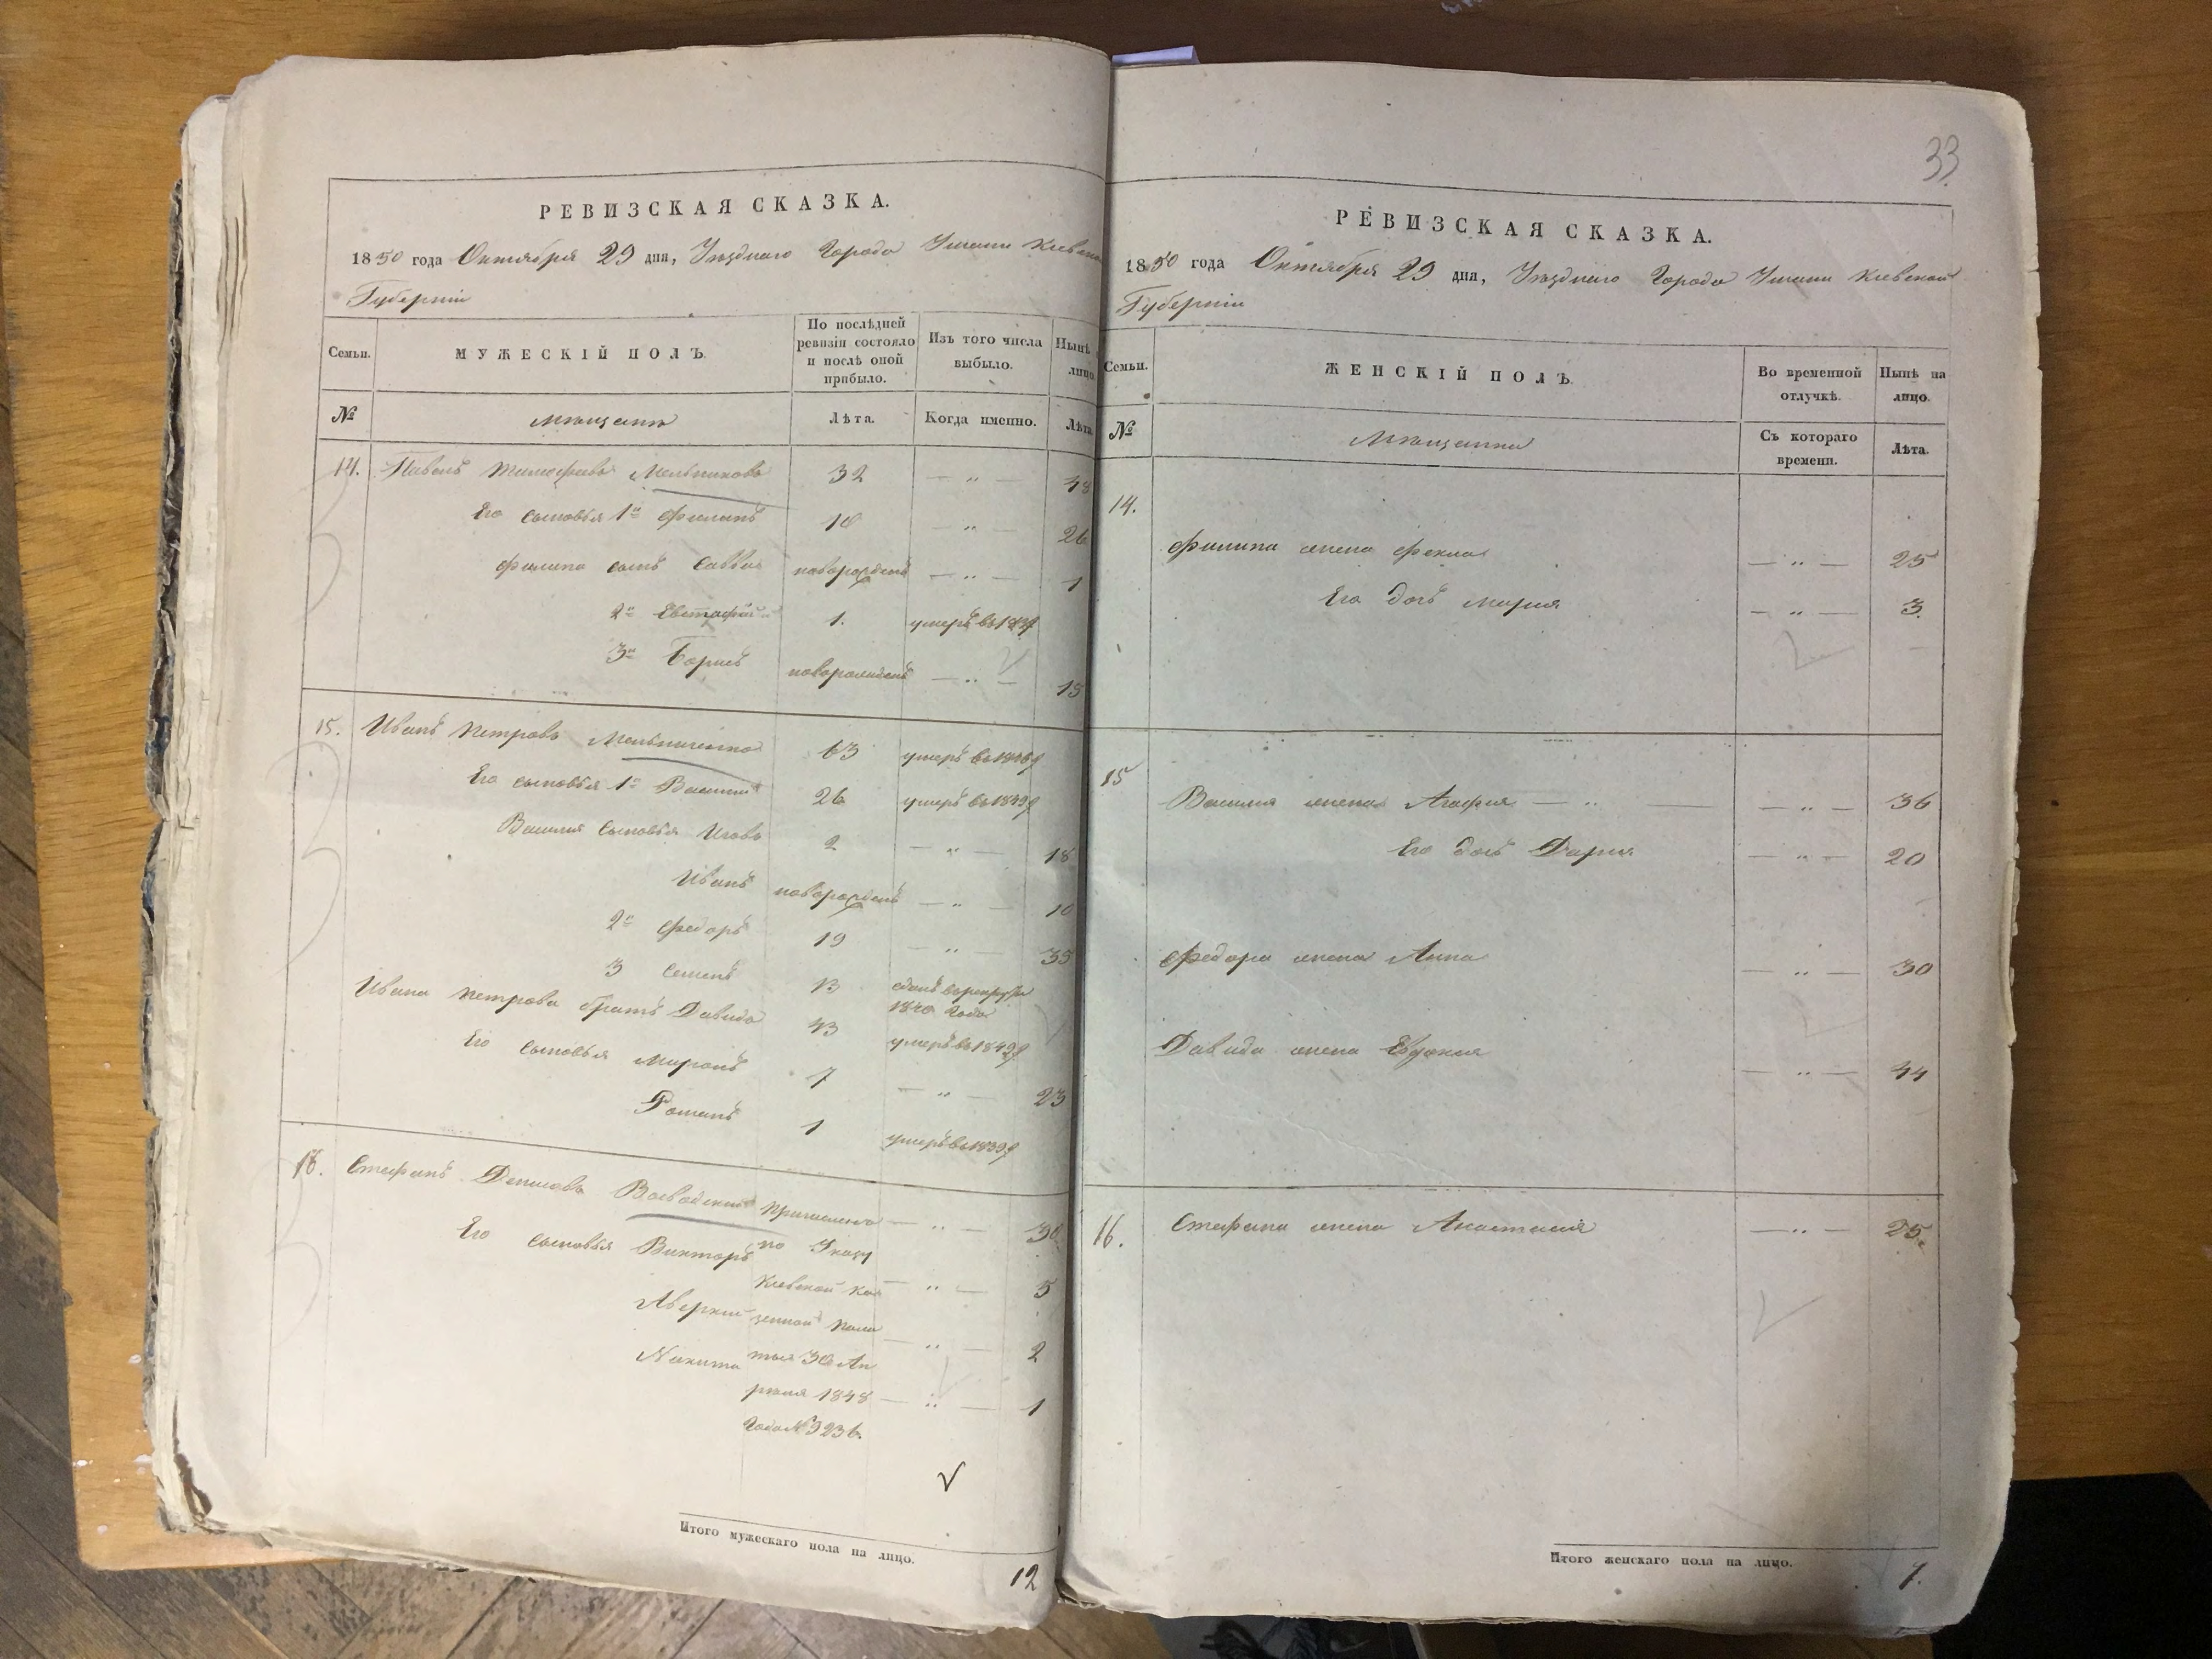 РЕВИЗСКАЯ СКАЗКА.
1850 года Октября 29 дня, Уѣзднаго Города Умани Кіевской
Губерніи
Семьи.
МУЖЕСКІЙ ПОЛЪ.
По послѣдней ревизіи состояло и послѣ оной прибыло.
Изъ того числа выбыло.
Нынѣ лицо.
№
Мѣщане
Лѣта.
Когда именно.
Лѣта.
14. Павелъ Тимофѣевъ Мельниковъ 32 — " — 48
Его сыновья 1й Филипъ 10 — " — 26
Филипа сынъ Савва новорожденъ — " — 1
2й Евстафій 1. умеръ въ 1839
3й Борисъ новорожденъ — " — 15
15. Иванъ Петровъ Мельниченко 63 умеръ въ
Его сыновья 1й Василій 26 умеръ въ 1849
Василія сыновья Яковъ 2 — " — 18
Иванъ новорожденъ — " — 10
2й Федоръ 19 — " — 35
3 Семенъ 13 сданъ въ рекруты
1840 Года
Ивана Петрова братъ Давидъ 43 умеръ въ 1849
Его сыновья Миронъ 7 — " — 23
Романъ 1 умеръ въ 1839
16. Стефанъ Денисовъ Воеводскій причисленъ — " — 30
по Указу
Его сыновья Викторъ
Кіевской Ка — " — 5
зенной Пала
Аверкій — " — 2
ты 30 Ап
Никита
рѣля 1848 — " — 1
Года № 9236.
Итого мужескаго пола на лицо.
12
33
РЕВИЗСКАЯ СКАЗКА.
1850 года Октября 29 дня, Уѣзднаго Города Умани Кіевской
Губерніи
Семьи.
ЖЕНСКІЙ ПОЛЪ.
Во временной отлучкѣ.
Нынѣ на лицо.
№
Мѣщанки
Съ котораго времени.
Лѣта.
14.
Филипа жена Фекла — " — 25
Его дочь Марія — " — 3
15
Василія жена Агафія — " — " — 36
Его дочь Дарія — " — 20
Федора жена Анна — " — 30
Давида жена Евдокія — " — 44
16. Стефана жена Анастасія — " — 25.
Итого женскаго пола на лицо.
7.